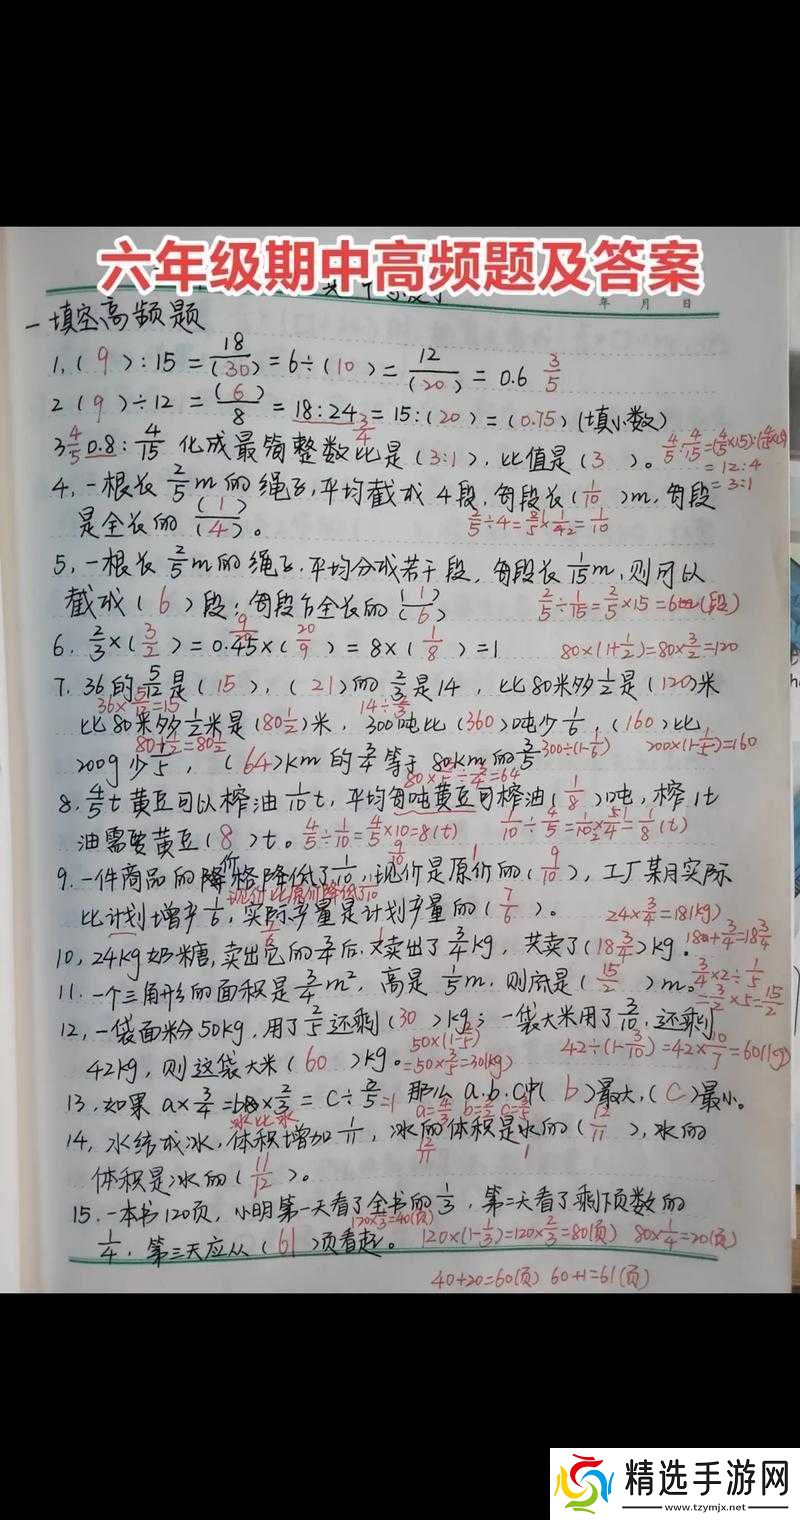 六年级期中高频题及答案
年 月 日
一填空高频题
1,( 9 ):15 = 18/(30) = 6÷(10) = 12/(20) = 0.6 3/5
2 ( 9 )÷12 = (6)/8 = 18:24 = 15:(20) = (0.75)(填小数)
3/4
3 0.8: 4/15 化成最简整数比是(3:1),比值是(3 )。
4/5
4/5:4/15=(4/5×15):(4/15×15)
=12:4
=3:1
4,一根长2/5m的绳子,平均截成4段,每段长(1/10)m,每段
是全长的(1)/(4)。
2/5÷4=2/5×1/4=1/10
5,一根长2/5m的绳子,平均分成若干段,每段长1/15m,则可以
截成( 6 )段;每段占全长的(1)/(6)
2/5÷1/15=2/5×15=6(段)
6. 2/3×(3/2)=0.45×(20/9)=8×(1/8)=1
9/20
80×(1+1/2)=80×3/2=120
7. 36的5/12是(15),(21)的2/3是14,比80米多1/2是(120)米
36×5/12=15
14÷2/3
比80米多1/2米是(80 1/2)米,300吨比(360)吨少1/6,(160)比
80+1/2=80 1/2
200g少1/5,(64)km的3/4等于80km的3/5
300÷(1-1/6)
200×(1-1/5)=160
80×3/5÷3/4=64
8. 4/5t黄豆可以榨油1/10t,平均每吨黄豆可榨油(1/8)吨,榨1t
油需要黄豆(8)t。
4/5÷1/10=4/5×10=8(t)
1/10÷4/5=1/10×5/4=1/8(t)
9.一件商品的价格降低了1/10,现价是原价的(9/10),工厂某月实际
9/10
1
现价比原价降低了1/10
比计划增产1/6,实际产量是计划产量的(7/6)。
24×3/4=18(kg)
10,24kg奶糖,卖出它的3/4后,又卖出了3/4kg,共卖了(18 3/4)kg。
18+3/4=18 3/4
11.一个三角形的面积是3/4m²,高是1/5m,则底是(15/2)m。
3/4×2÷1/5
=3/2×5=15/2
12,一袋面粉50kg,用了2/5还剩(30)kg;一袋大米用了3/10,还剩
50×(1-2/5)
42kg,则这袋大米(60)kg。
=50×3/5=30(kg)
42÷(1-3/10)=42×10/7=60(kg)
13.如果a×3/4=b×2/3=c÷3/5=1 那么a.b.c中(b)最大,(c)最小。
a=4/3 b=3/2 c=3/5
冰比水
14,水结成冰,体积增加1/11,冰的体积是水的(12/11),水的
12/11
1
体积是冰的(11/12)。
15.一本书120页,小明第一天看了全书的1/3,第二天看了剩下页数的
120×1/3=40(页)
1/4,第三天应从(61)页看起。
120×(1-1/3)=120×2/3=80(页) 80×1/4=20(页)
40+20=60(页) 60+1=61(页)
精选手游网
www.tzymjx.net